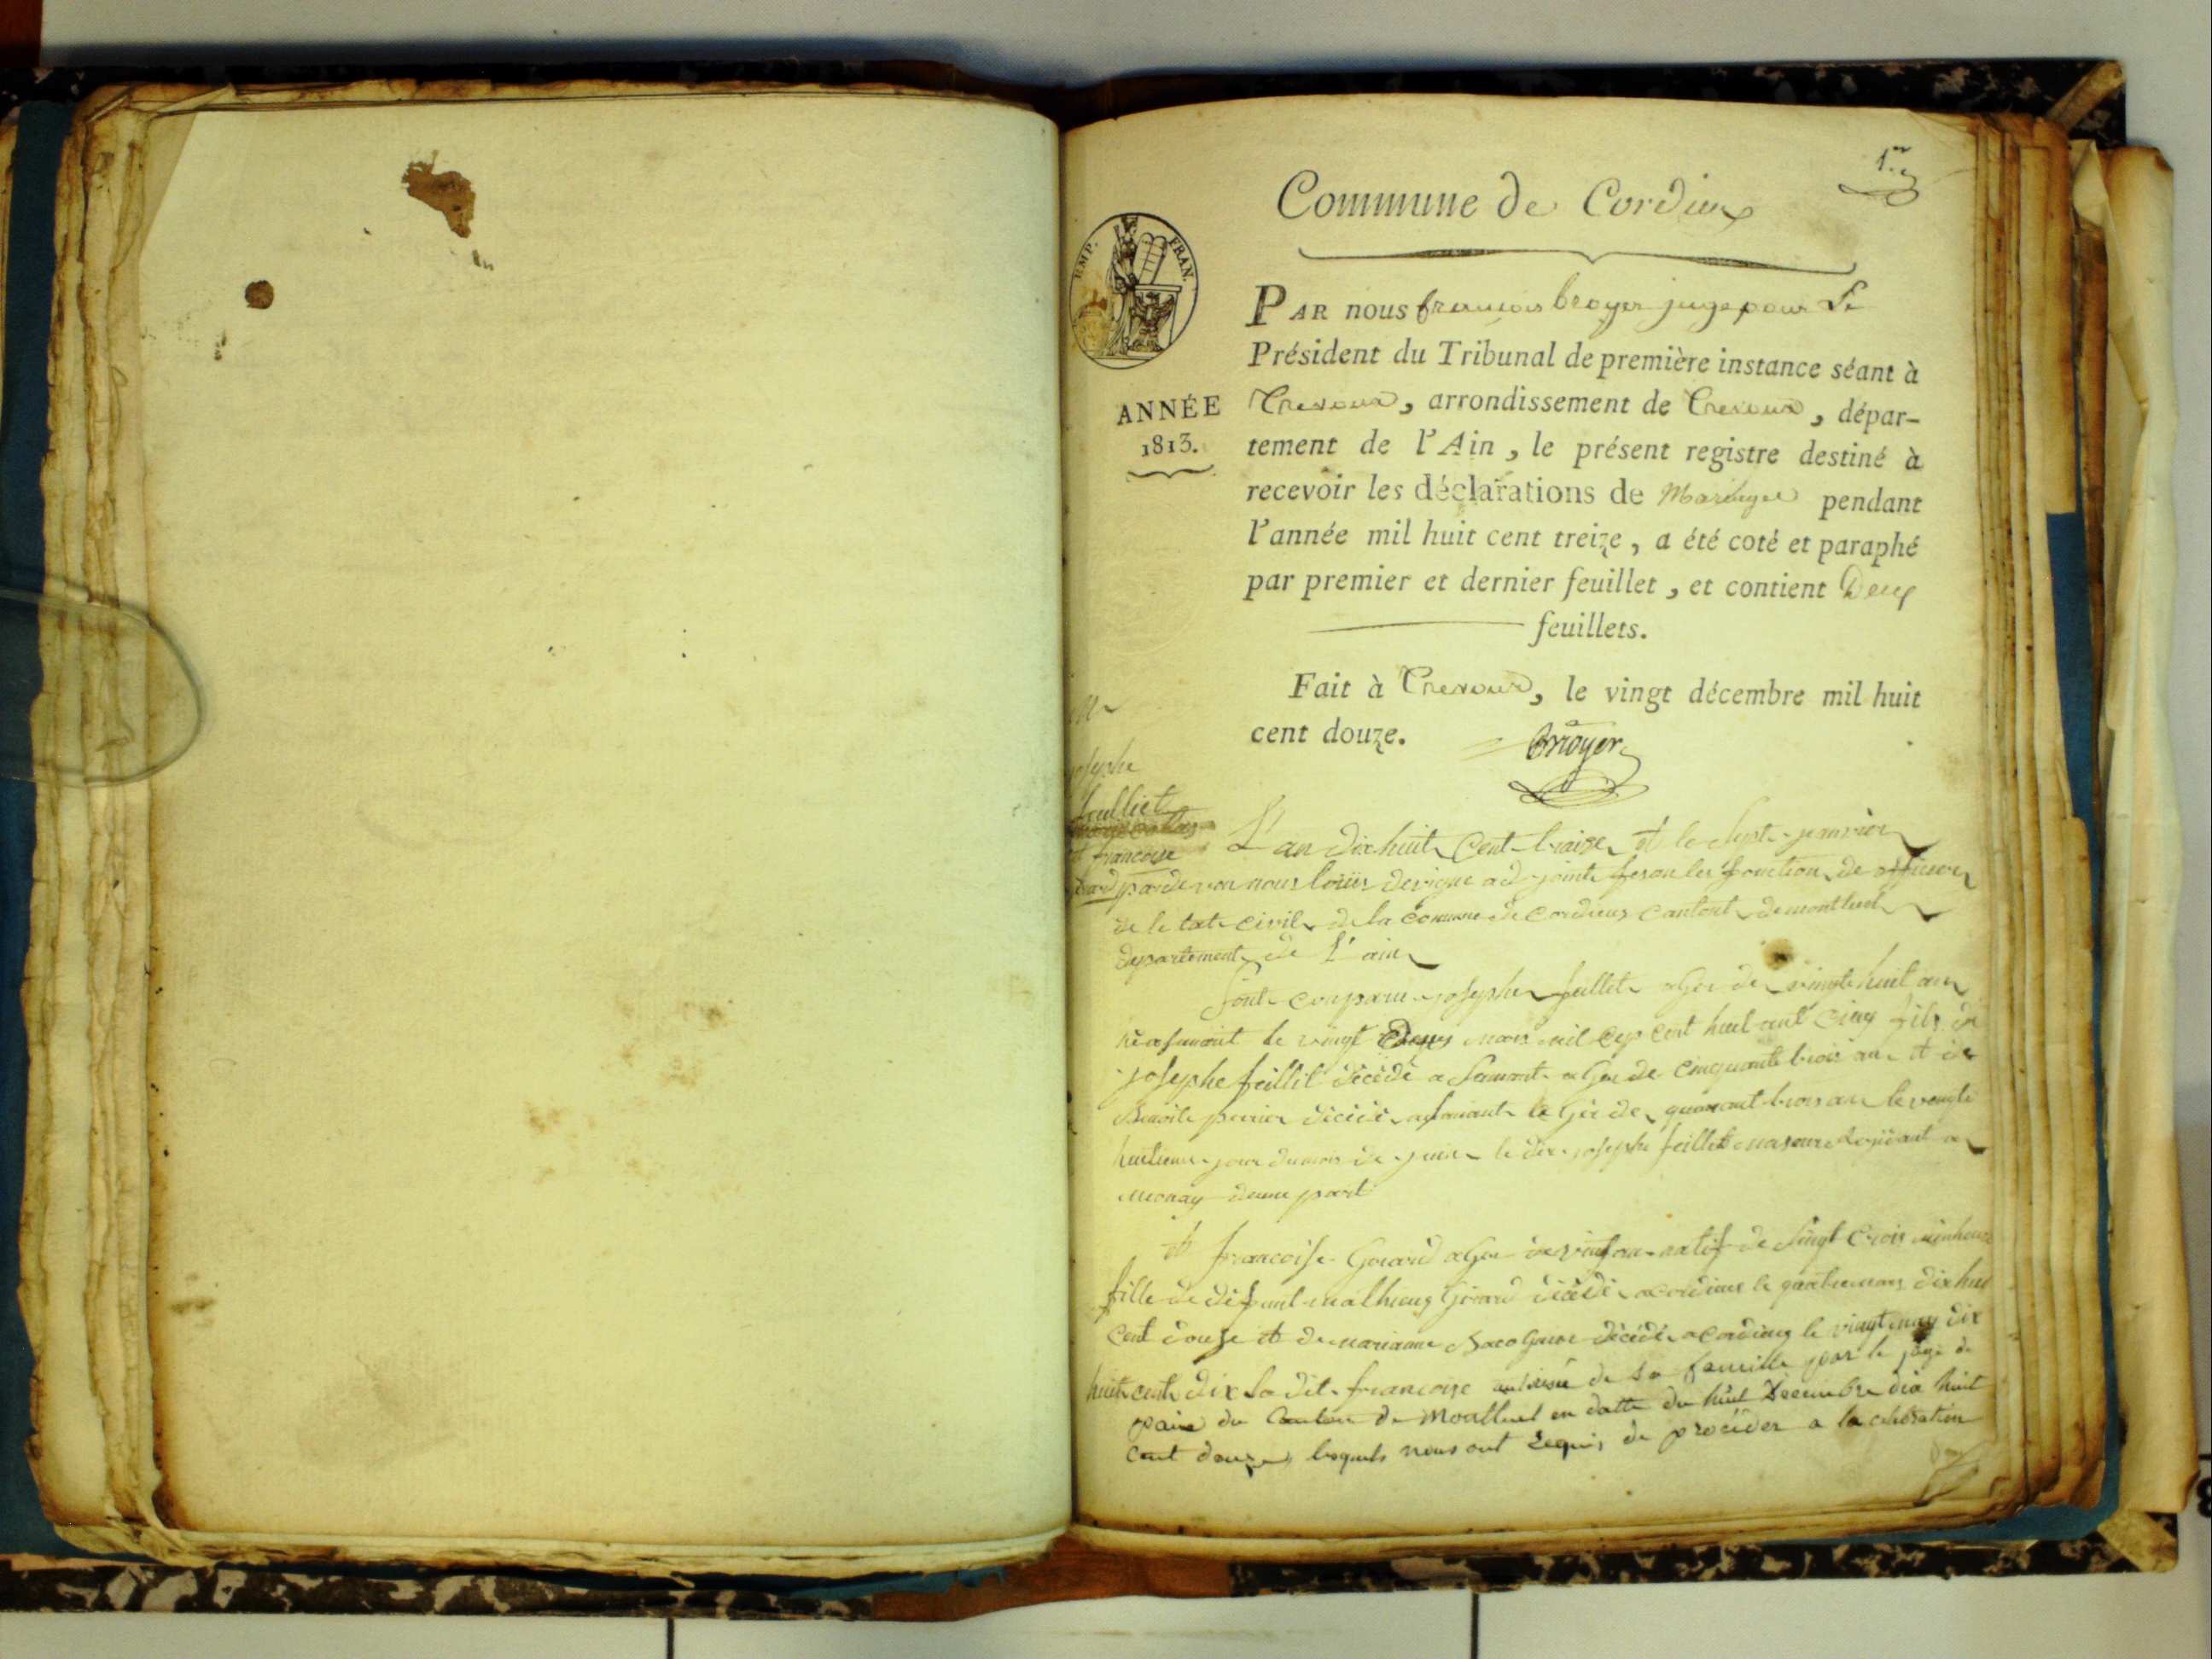 1.er
Commune de Cordieux
EMP. FRAN.
PAR nous françois broyer juge pour Le
Président du Tribunal de première instance séant à
Trevoux, arrondissement de Trevoux, dépar-
ANNÉE
1813.
tement de l'Ain, le présent registre destiné à
recevoir les déclarations de Mariages pendant
l'année mil huit cent treize, a été coté et paraphé
par premier et dernier feuillet, et contient Deux
feuillets.
Fait à Trevoux, le vingt décembre mil huit
cent douze.
Broyer
josephe
et francoise
L'an dix huit cent traize et le sept janvier
pardevan nous louis devigne adjoint fesan les fonction de officier
de le tate civil de la comune de cordieux cantont de montluel
departement de L'ain
sont conparu josephe feillet agée de vingt huit an
le vingt mars mil cep cent huit ant cinq fils de
josephe feillet décédé a agée de cinquante trois an et de
Benoite perrier décédé a agée de quarant trois an le vingt
huitieme jour du mois de juin le dit josephe feillet
mionay dune part
et francoise Girard agée de an natif de Saint Croix
fille de defunt mathieux Girard décédé a cordieux le quatre mars dix huit
cent douze et de marianne décédé a cordieux le vingt may dix
huit cent dix la dit francoise autorisée de sa famille par le juge de
paix du Canton de Montluel en datte du huit Decembre dix huit
cent douze lesquels nous ont requis de procéder a la celebration